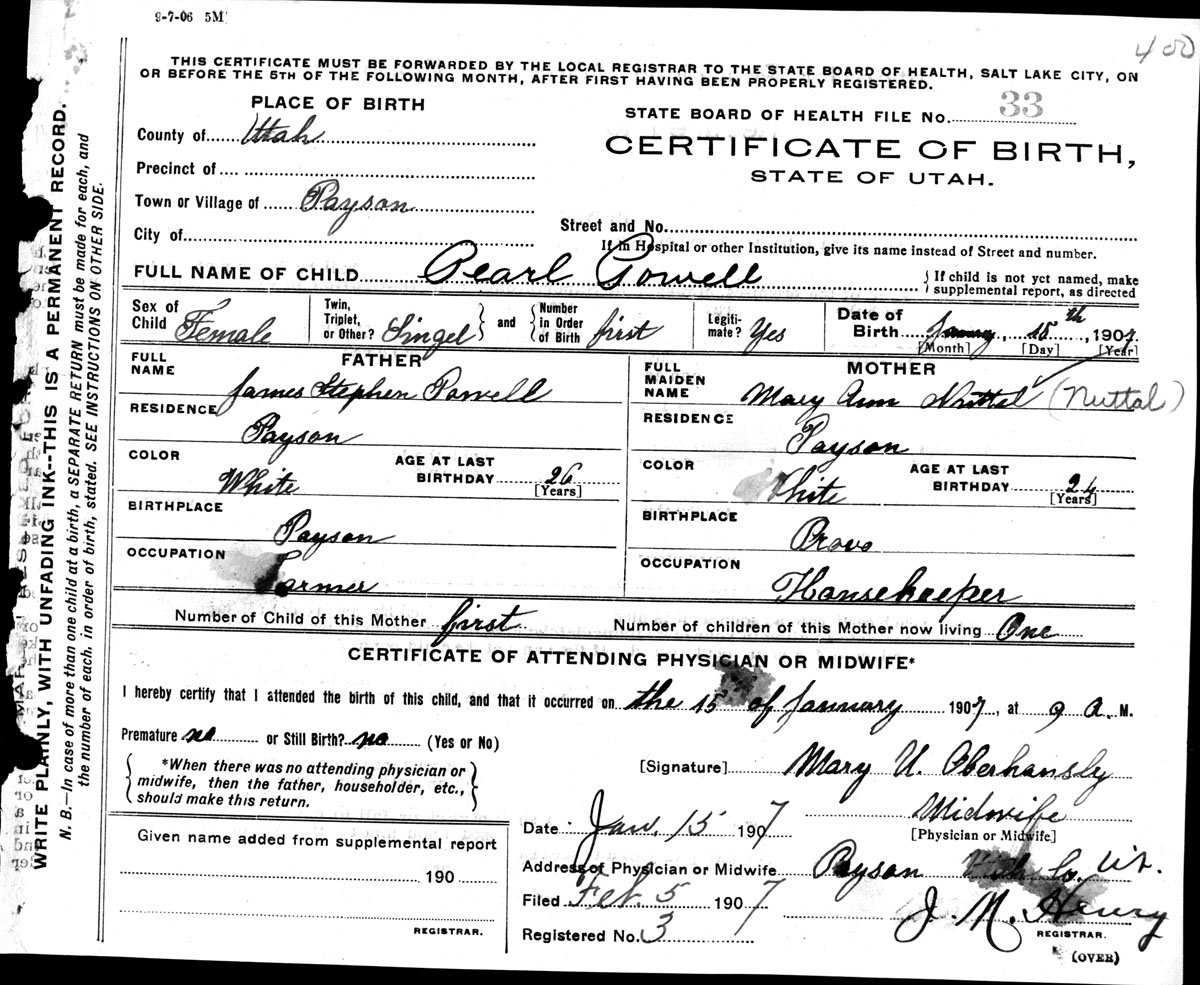 9-7-06 5M
400
THIS CERTIFICATE MUST BE FORWARDED BY THE LOCAL REGISTRAR TO THE STATE BOARD OF HEALTH, SALT LAKE CITY, ON
OR BEFORE THE 5TH OF THE FOLLOWING MONTH, AFTER FIRST HAVING BEEN PROPERLY REGISTERED.
PLACE OF BIRTH
STATE BOARD OF HEALTH FILE No. 33
County of Utah
CERTIFICATE OF BIRTH,
STATE OF UTAH.
Precinct of
Town or Village of Payson
Street and No.
City of
If in Hospital or other Institution, give its name instead of Street and number.
FULL NAME OF CHILD Pearl Powell
{If child is not yet named, make
supplemental report, as directed
Sex of Child Female
Twin, Triplet, or Other? Singel
and
Number in Order of Birth first
Legitimate? Yes
Date of Birth January 15th, 1907
[Month] [Day] [Year]
FATHER
FULL NAME James Stephen Powell
RESIDENCE Payson
COLOR White
AGE AT LAST BIRTHDAY 26
[Years]
BIRTHPLACE Payson
OCCUPATION Farmer
MOTHER
FULL MAIDEN NAME Mary Ann Nuttal (Nuttal)
RESIDENCE Payson
COLOR White
AGE AT LAST BIRTHDAY 24
[Years]
BIRTHPLACE Provo
OCCUPATION Housekeeper
Number of Child of this Mother first Number of children of this Mother now living One
CERTIFICATE OF ATTENDING PHYSICIAN OR MIDWIFE*
I hereby certify that I attended the birth of this child, and that it occurred on the 15 of January 1907, at 9 A. M.
Premature no or Still Birth? no (Yes or No)
*When there was no attending physician or
midwife, then the father, householder, etc.,
should make this return.
[Signature] Mary U. Oberhansly
Midwife
[Physician or Midwife]
Date Jan. 15 1907
Given name added from supplemental report
190
REGISTRAR.
Address of Physician or Midwife Payson Utah Co. Ut.
Filed Feb. 5 1907
J. M. Henry
REGISTRAR.
Registered No. 3
(OVER)
WRITE PLAINLY, WITH UNFADING INK--THIS IS A PERMANENT RECORD.
N. B.—In case of more than one child at a birth, a SEPARATE RETURN must be made for each, and
the number of each, in order of birth, stated. SEE INSTRUCTIONS ON OTHER SIDE.